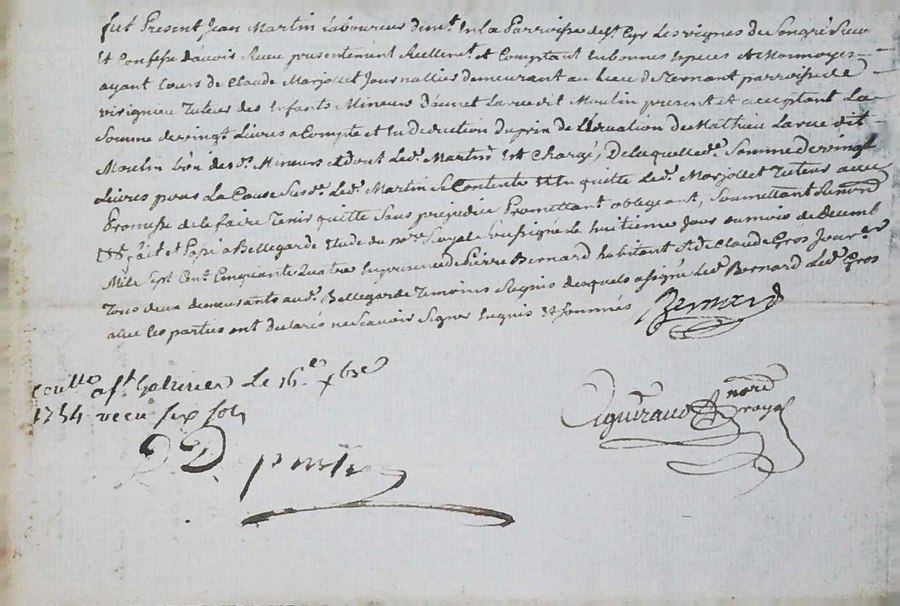 fut Present Jean Martin Laboureur demt. En La Parroisse de st. Cyr Les vignes du Son gré
Et Confesse d'avoir Recu presentement Reellemt. et Comptant En bonnes Especes et Monnoyes
ayant Cours de Claude Marjollet Journallier demeurant au Lieu de parroisse de
virignieu Tuteur des Enfants Mineurs Larue dit Moulin present et acceptant La
Somme de vingt Livres a Compte et En Deduction du prix de de Mathieu Larue dit
Moulin L'un des ds. Mineurs et dont Led. Martin Est Chargé, De Laquelle de. Somme de vingt
Livres pour La Cause Susde. Led. Martin Se Contente Et En quitte Led. Marjollet Tuteur avec
Promesse de le faire Tenir quitte Sans prejudice Promettant obligeant, Soumettant Renond
&& fait et Passé a Bellegarde Etude du nore. Royal Soussigné Le huitieme Jour du mois de Decemb
Mile Sept Cent Cinquante Quatre En presence de Pierre Bernard habitant Et de Claude Gros Jourer
Tous deux demeurants aud. Bellegarde Temoins Requis desquels a signé Led. Bernard Led. Gros
avec les parties ont declarés ne Scavoir Signer Enquis Et Sommés Bernard
Coullé a st. Galmier Le 16e. xbre
1754 recu six sols
nore. royal